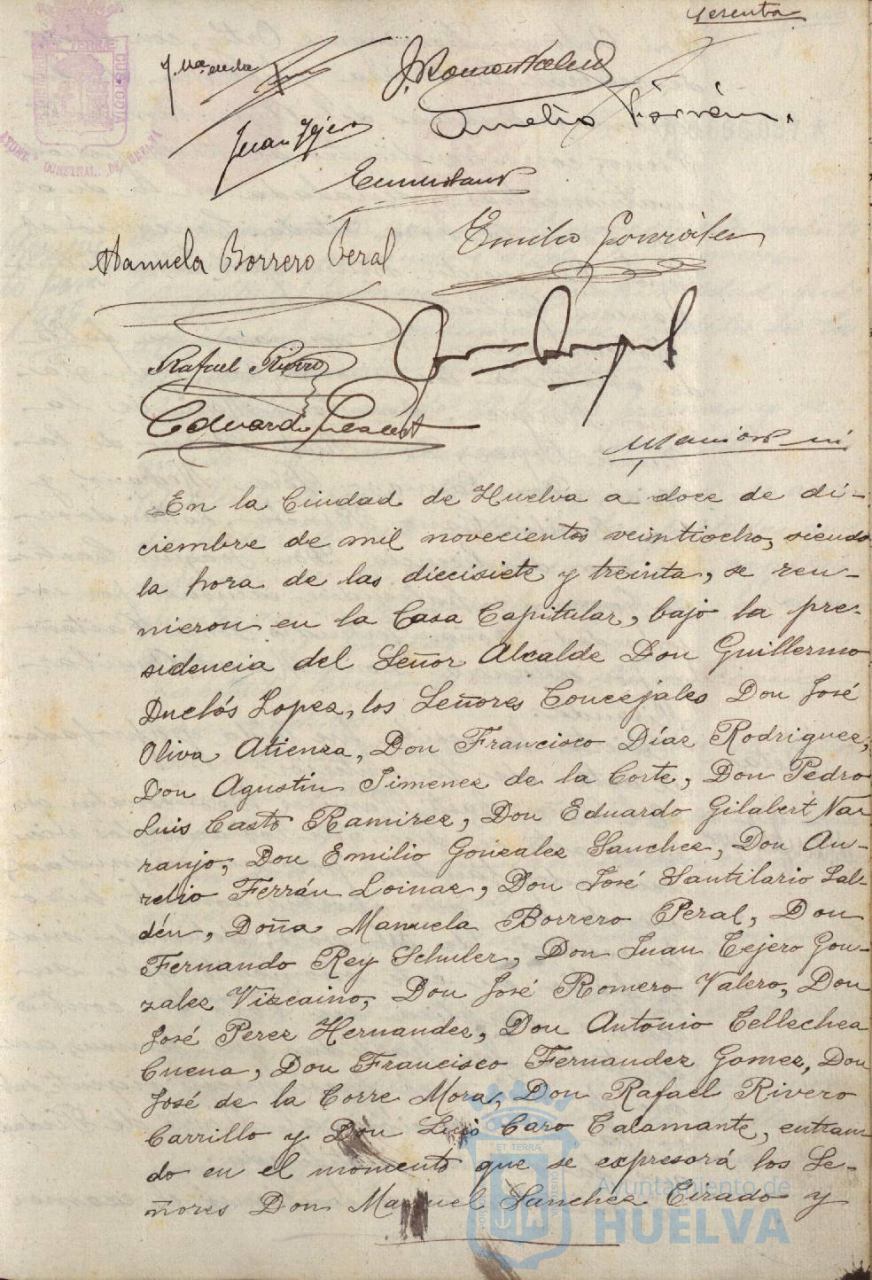 sesenta
Juan Tejero
Aurelio Ferrán
Manuela Borrero Peral
Emilio González
Rafael Rivero
Eduardo Gilabert
En la Ciudad de Huelva a doce de di-
ciembre de mil novecientos veintiocho, siendo
la hora de las diecisiete y treinta, se reu-
nieron en la Casa Capitular, bajo la pre-
sidencia del Señor Alcalde Don Guillermo
Duclós Lopez, los Señores Concejales Don José
Oliva Atienza, Don Francisco Díaz Rodriguez,
Don Agustín Jimenez de la Corte, Don Pedro
Luis Casto Ramirez, Don Eduardo Gilabert Na-
ranjo, Don Emilio Gonzalez Sanchez, Don Au-
relio Ferrán Loinaz, Don José Santilario Sal-
dén, Doña Manuela Borrero Peral, Don
Fernando Rey Schuler, Don Juan Tejero Gon-
zalez Vizcaino, Don José Romero Valero, Don
José Perez Hernandez, Don Antonio Tellechea
Cuena, Don Francisco Fernandez Gomez, Don
José de la Torre Mora, Don Rafael Rivero
Carrillo y Don Luis Caro Talamante, entran-
do en el momento que se expresará los Se-
ñores Don Manuel Sanchez Tirado y
Ayuntamiento de
HUELVA